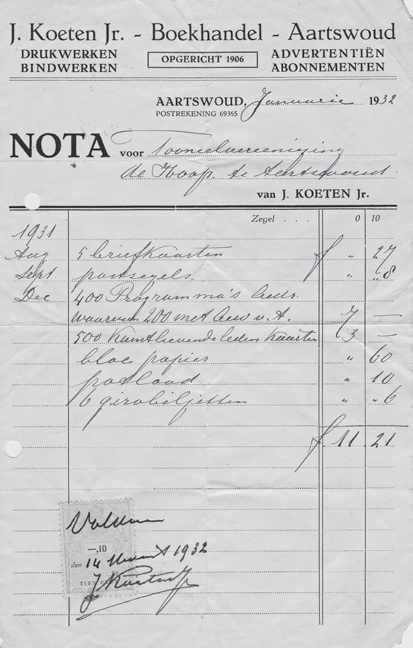 J. Koeten Jr. - Boekhandel - Aartswoud
DRUKWERKEN
BINDWERKEN
OPGERICHT 1906
ADVERTENTIËN
ABONNEMENTEN
AARTSWOUD, Januarie 1932
POSTREKENING 69365
NOTA voor Tooneelvereeniging
de Hoop te Aartswoud
van J. KOETEN Jr.
Zegel . . . 0 10
1931
Aug 5 briefkaarten f " 27
Sept postzegels " " 8
Dec 400 Programma's
waarvan 200 met v. A. 7 —
500 Kunstlievende leden Kaarten 3 —
bloc papier " 60
potlood " 10
6 girobiljetten " " 6
f 11 21
Voldaan
—,10
den 14 Maart 1932
J Koeten Jr